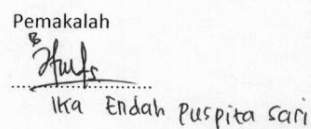 Pemakalah
Ika Endah Puspita Sari